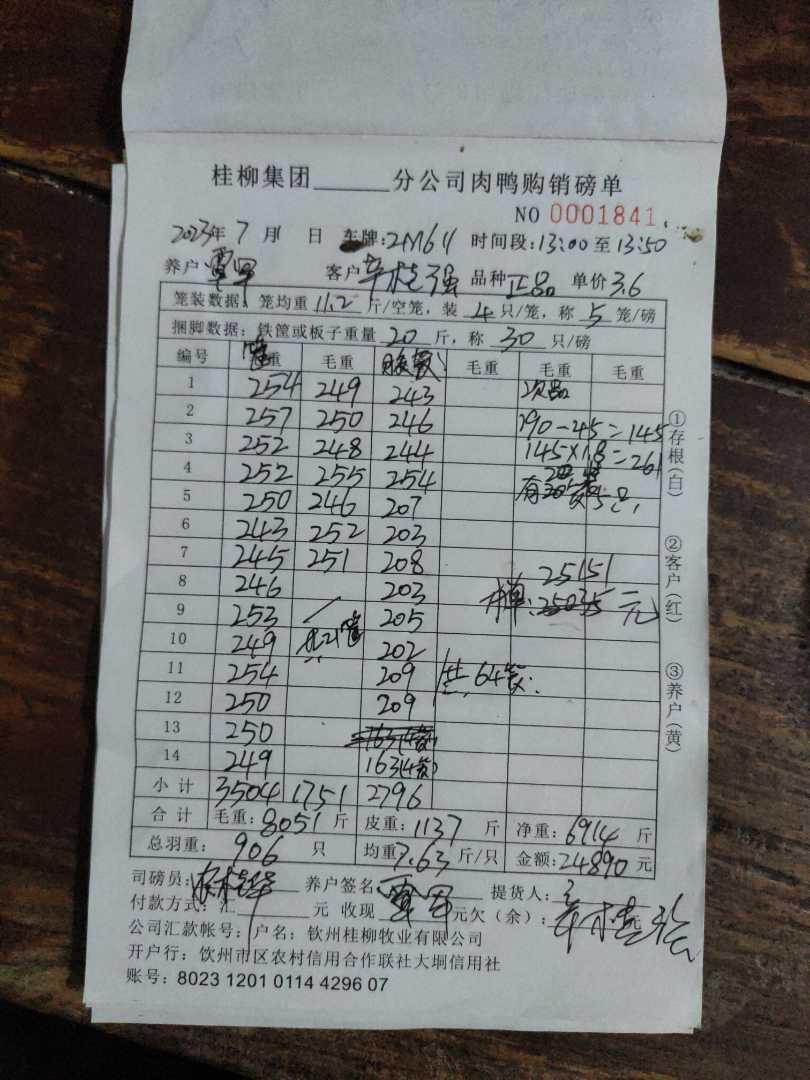 桂柳集团______分公司肉鸭购销磅单
NO 0001841
2023年 7 月 1 日 车牌:2M611 时间段:13:00至13:50
养户 覃军 客户 强 品种 正品 单价 3.6
笼装数据:笼均重 11.2 斤/空笼,装 4 只/笼,称 5 笼/磅
捆脚数据:铁筐或板子重量 20 斤,称 30 只/磅
编号 重 毛重 毛重 毛重 毛重
1 254 249 243 次品
2 257 250 246 190-45=145
3 252 248 244 145×1.8=261
4 252 255 254
5 250 246 207 有 5只,
6 243 252 203
7 245 251 208 25151
8 246 203 单: 元
9 253 205
10 249 共21筐 202
11 254 209 共64
12 250 209
13 250
14 249 163(4)
小计 3504 1751 2796
合计 毛重:8051 斤 皮重:1137 斤 净重:6914 斤
总羽重: 906 只 均重7.63 斤/只 金额:24890 元
司磅员: 养户签名 覃军 提货人:
付款方式:汇______元 收现 元欠(余):
公司汇款帐号:户名:钦州桂柳牧业有限公司
开户行:饮州市区农村信用合作联社大垌信用社
账号:8023 1201 0114 4296 07
①存根(白)
②客户(红)
③养户(黄)